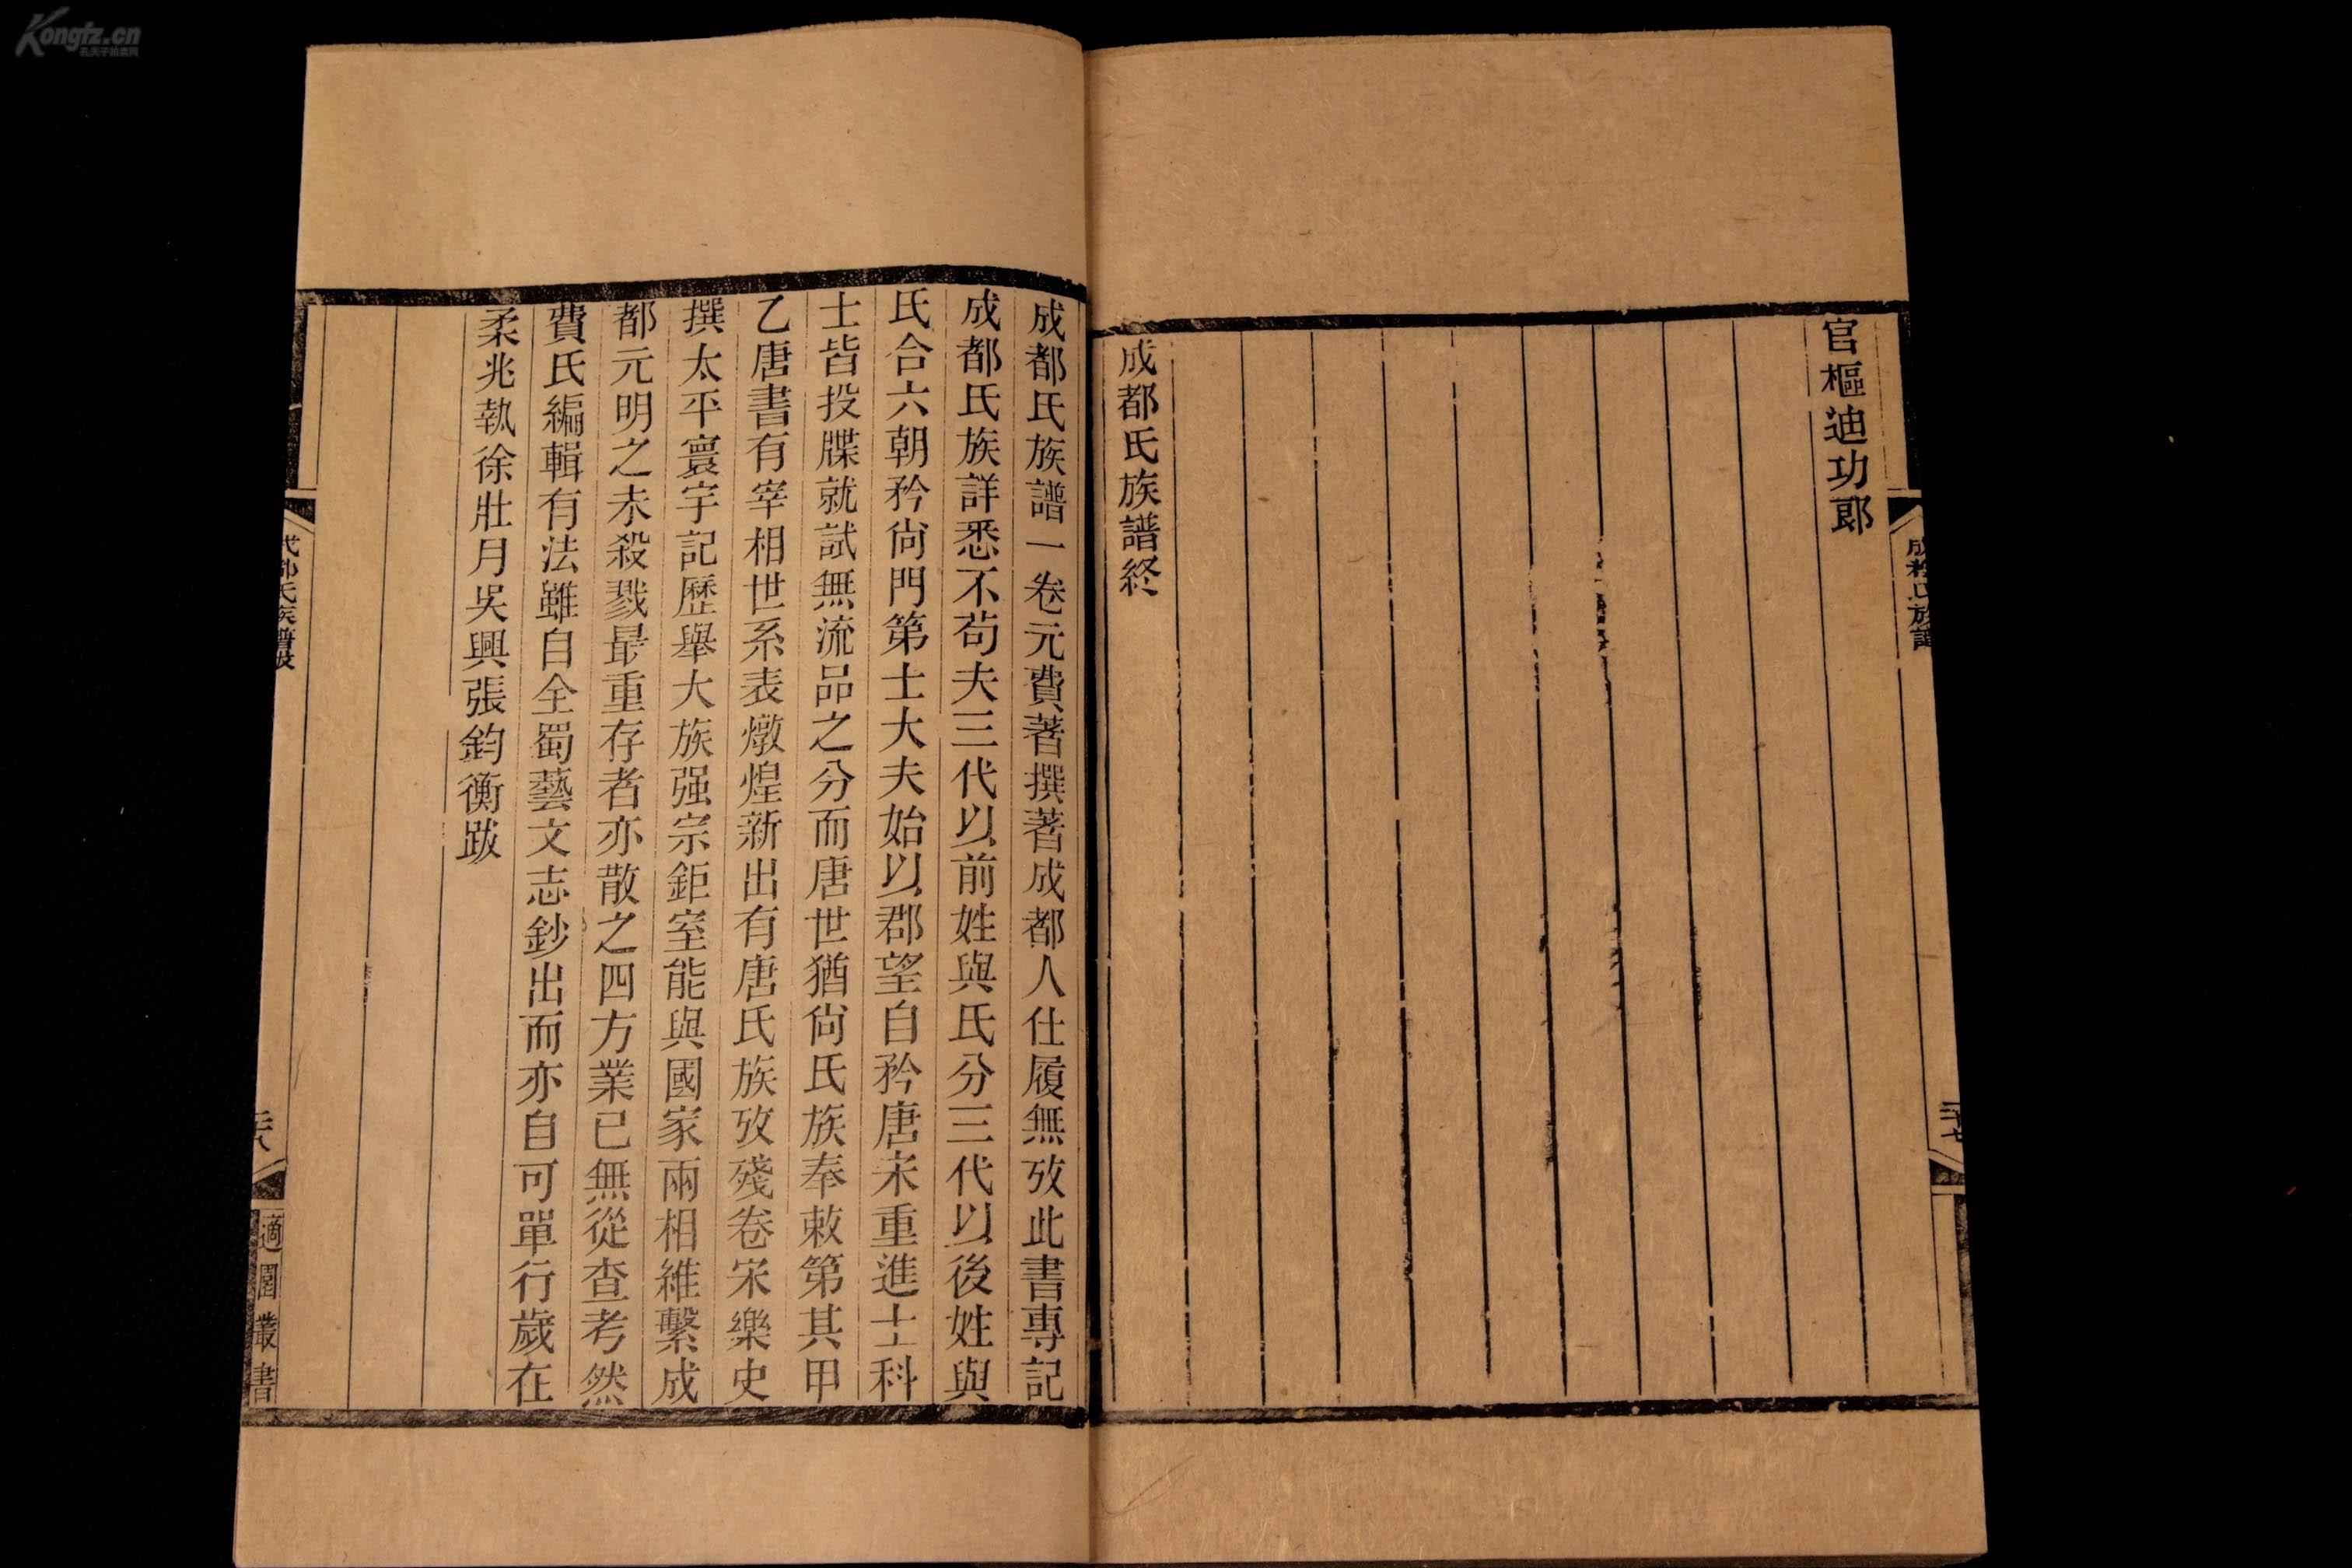 官樞迪功郎
成都氏族譜終
成都氏族譜
二十七
成都氏族譜一卷元費著撰著成都人仕履無攷此書專記
成都氏族詳悉不苟夫三代以前姓與氏分三代以後姓與
氏合六朝矜尙門第士大夫始以郡望自矜唐宋重進士科
士皆投牒就試無流品之分而唐世猶尙氏族奉敕第其甲
乙唐書有宰相世系表燉煌新出有唐氏族攷殘卷宋樂史
撰太平寰宇記歷舉大族强宗鉅室能與國家兩相維繫成
都元明之未殺戮最重存者亦散之四方業已無從查考然
費氏編輯有法雖自全蜀藝文志鈔出而亦自可單行歲在
柔兆執徐壯月吳興張鈞衡跋
成都氏族譜跋
二十八
適園叢書
Kongfz.cn
孔夫子拍卖网